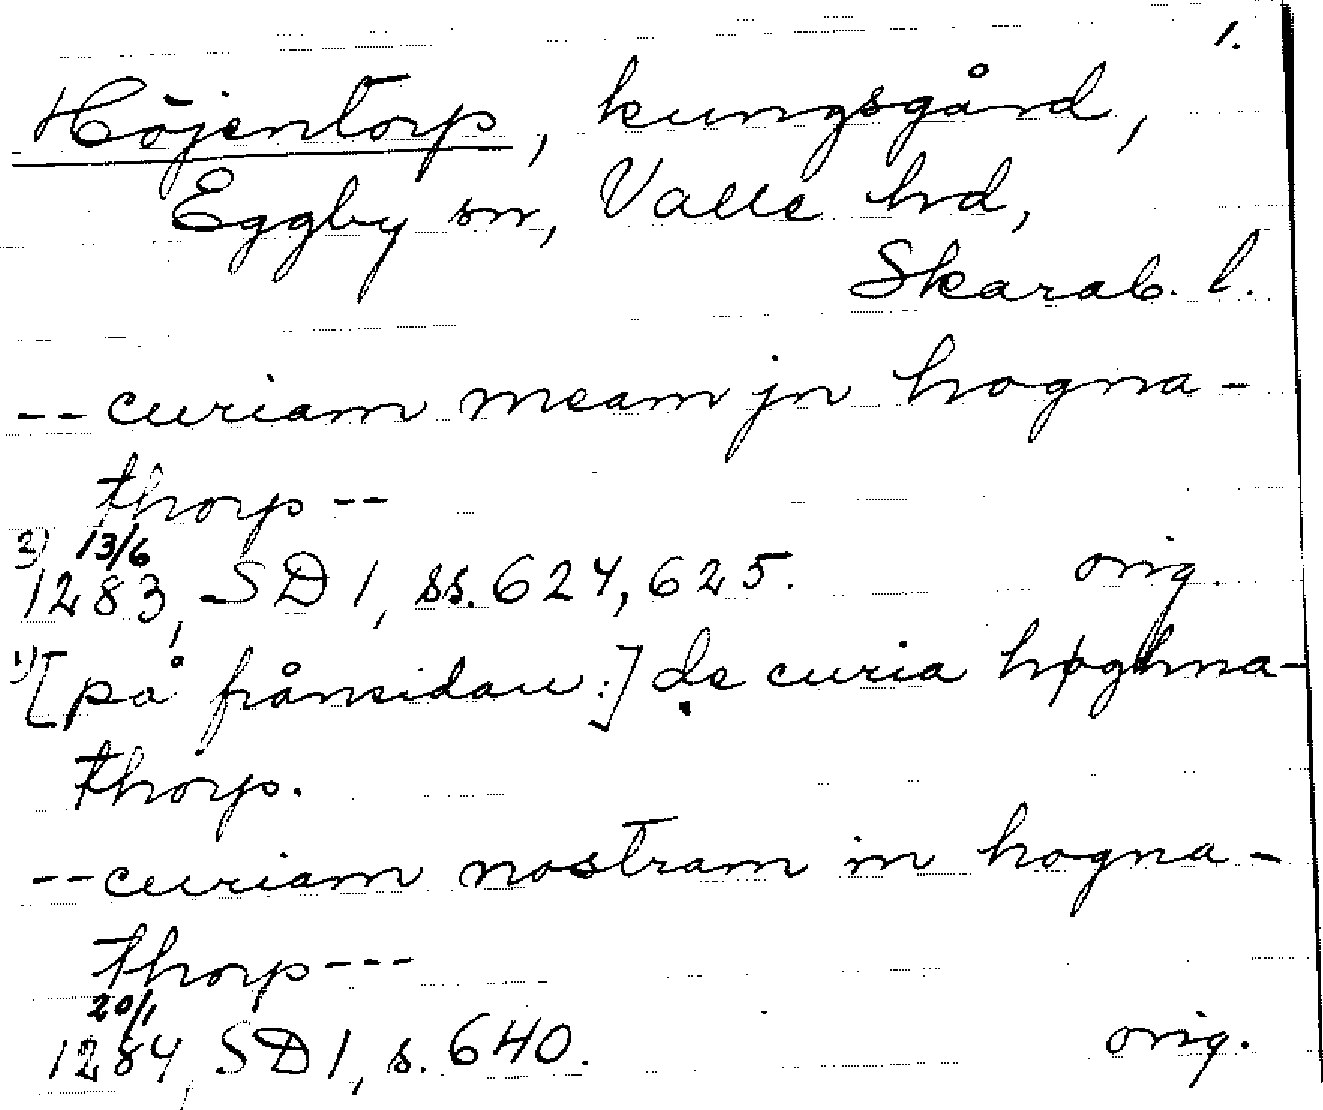 1.
Höjentorp, kungsgård,
Eggby sn, Valle hd,
Skarab. l.
-- curiam meam jn hogna-
thorp --
2) 13/6
1283, SD 1, ss. 624, 625. orig.
1) [på frånsidan:] de curia høghna-
thorp.
-- curiam nostram in hogna-
thorp ---
20/1
1284, SD 1, s. 640. orig.